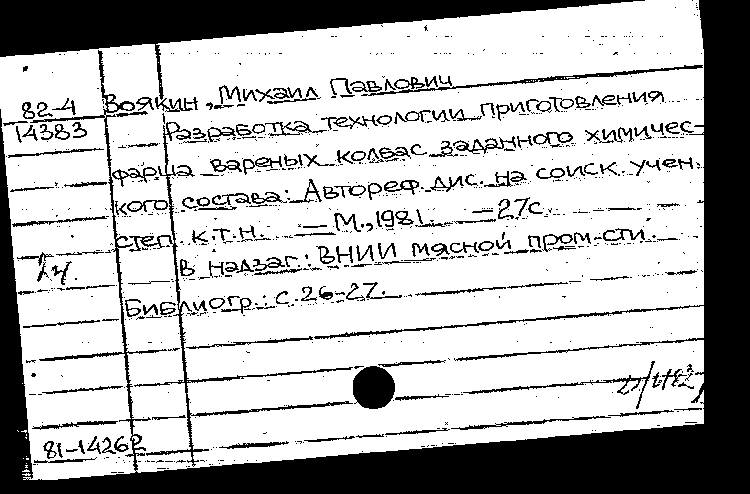 82-4 Воякин, Михаил Павлович
14383 Разработка технологии приготовления
фарша вареных колбас заданного химичес-
кого состава: Автореф. дис. на соиск. учен.
степ. к.т.н. — М., 1981. — 27с.
В надзаг.: ВНИИ мясной пром-сти.
2х.
Библиогр.: с. 26-27.
81-14262